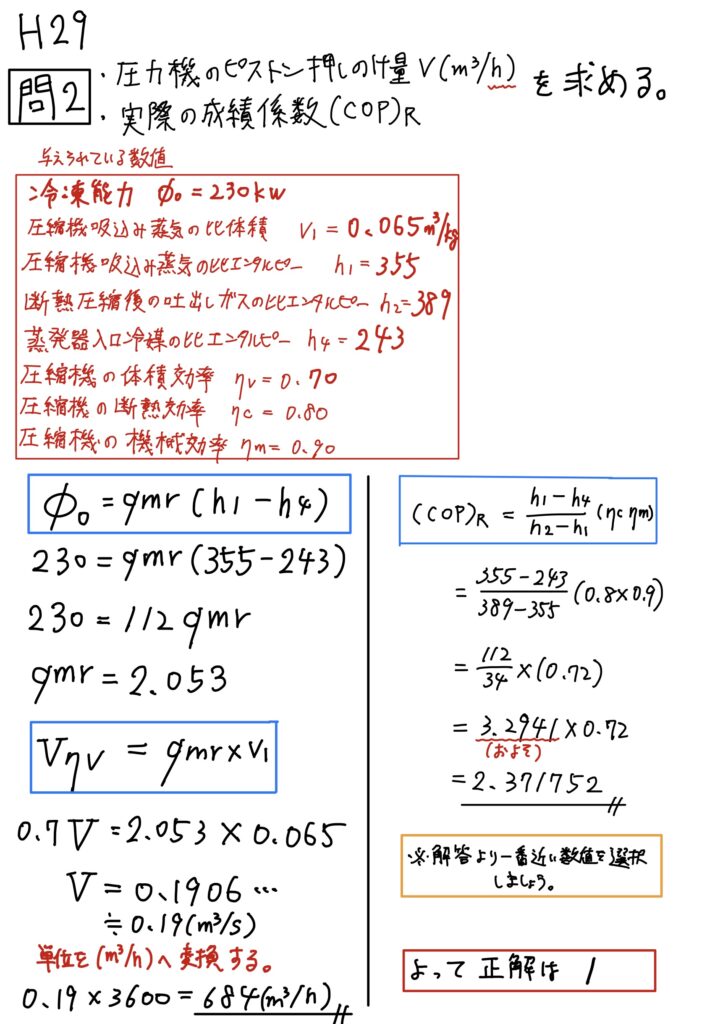 H29
問2
・圧力機のピストン押しのけ量 V(m³/h)
・実際の成績係数(COP)R
を求める。
与えられている数値
冷凍能力 φ₀=230kw
圧縮機吸込み蒸気の比体積 v₁=0.065m³/kg
圧縮機吸込み蒸気の比エンタルピー h₁=355
断熱圧縮後の吐出しガスの比エンタルピー h₂=389
蒸発器入口冷媒の比エンタルピー h₄=243
圧縮機の体積効率 ηv=0.70
圧縮機の断熱効率 ηc=0.80
圧縮機の機械効率 ηm=0.90
φ₀=qmr(h1-h4)
230=qmr(355-243)
230=112qmr
qmr=2.053
Vηv=qmr×v₁
0.7V=2.053×0.065
V=0.1906…
≒0.19(m³/s)
単位を(m³/h)へ変換する。
0.19×3600=684(m³/h)
(COP)R=\frac{h₁-h₄}{h₂-h₁}(ηc ηm)
=\frac{355-243}{389-355}(0.8×0.9)
=\frac{112}{34}×(0.72)
=3.2941×0.72
(およそ)
=2.371752
※解答より一番近い数値を選択
しましょう。
よって 正解は 1